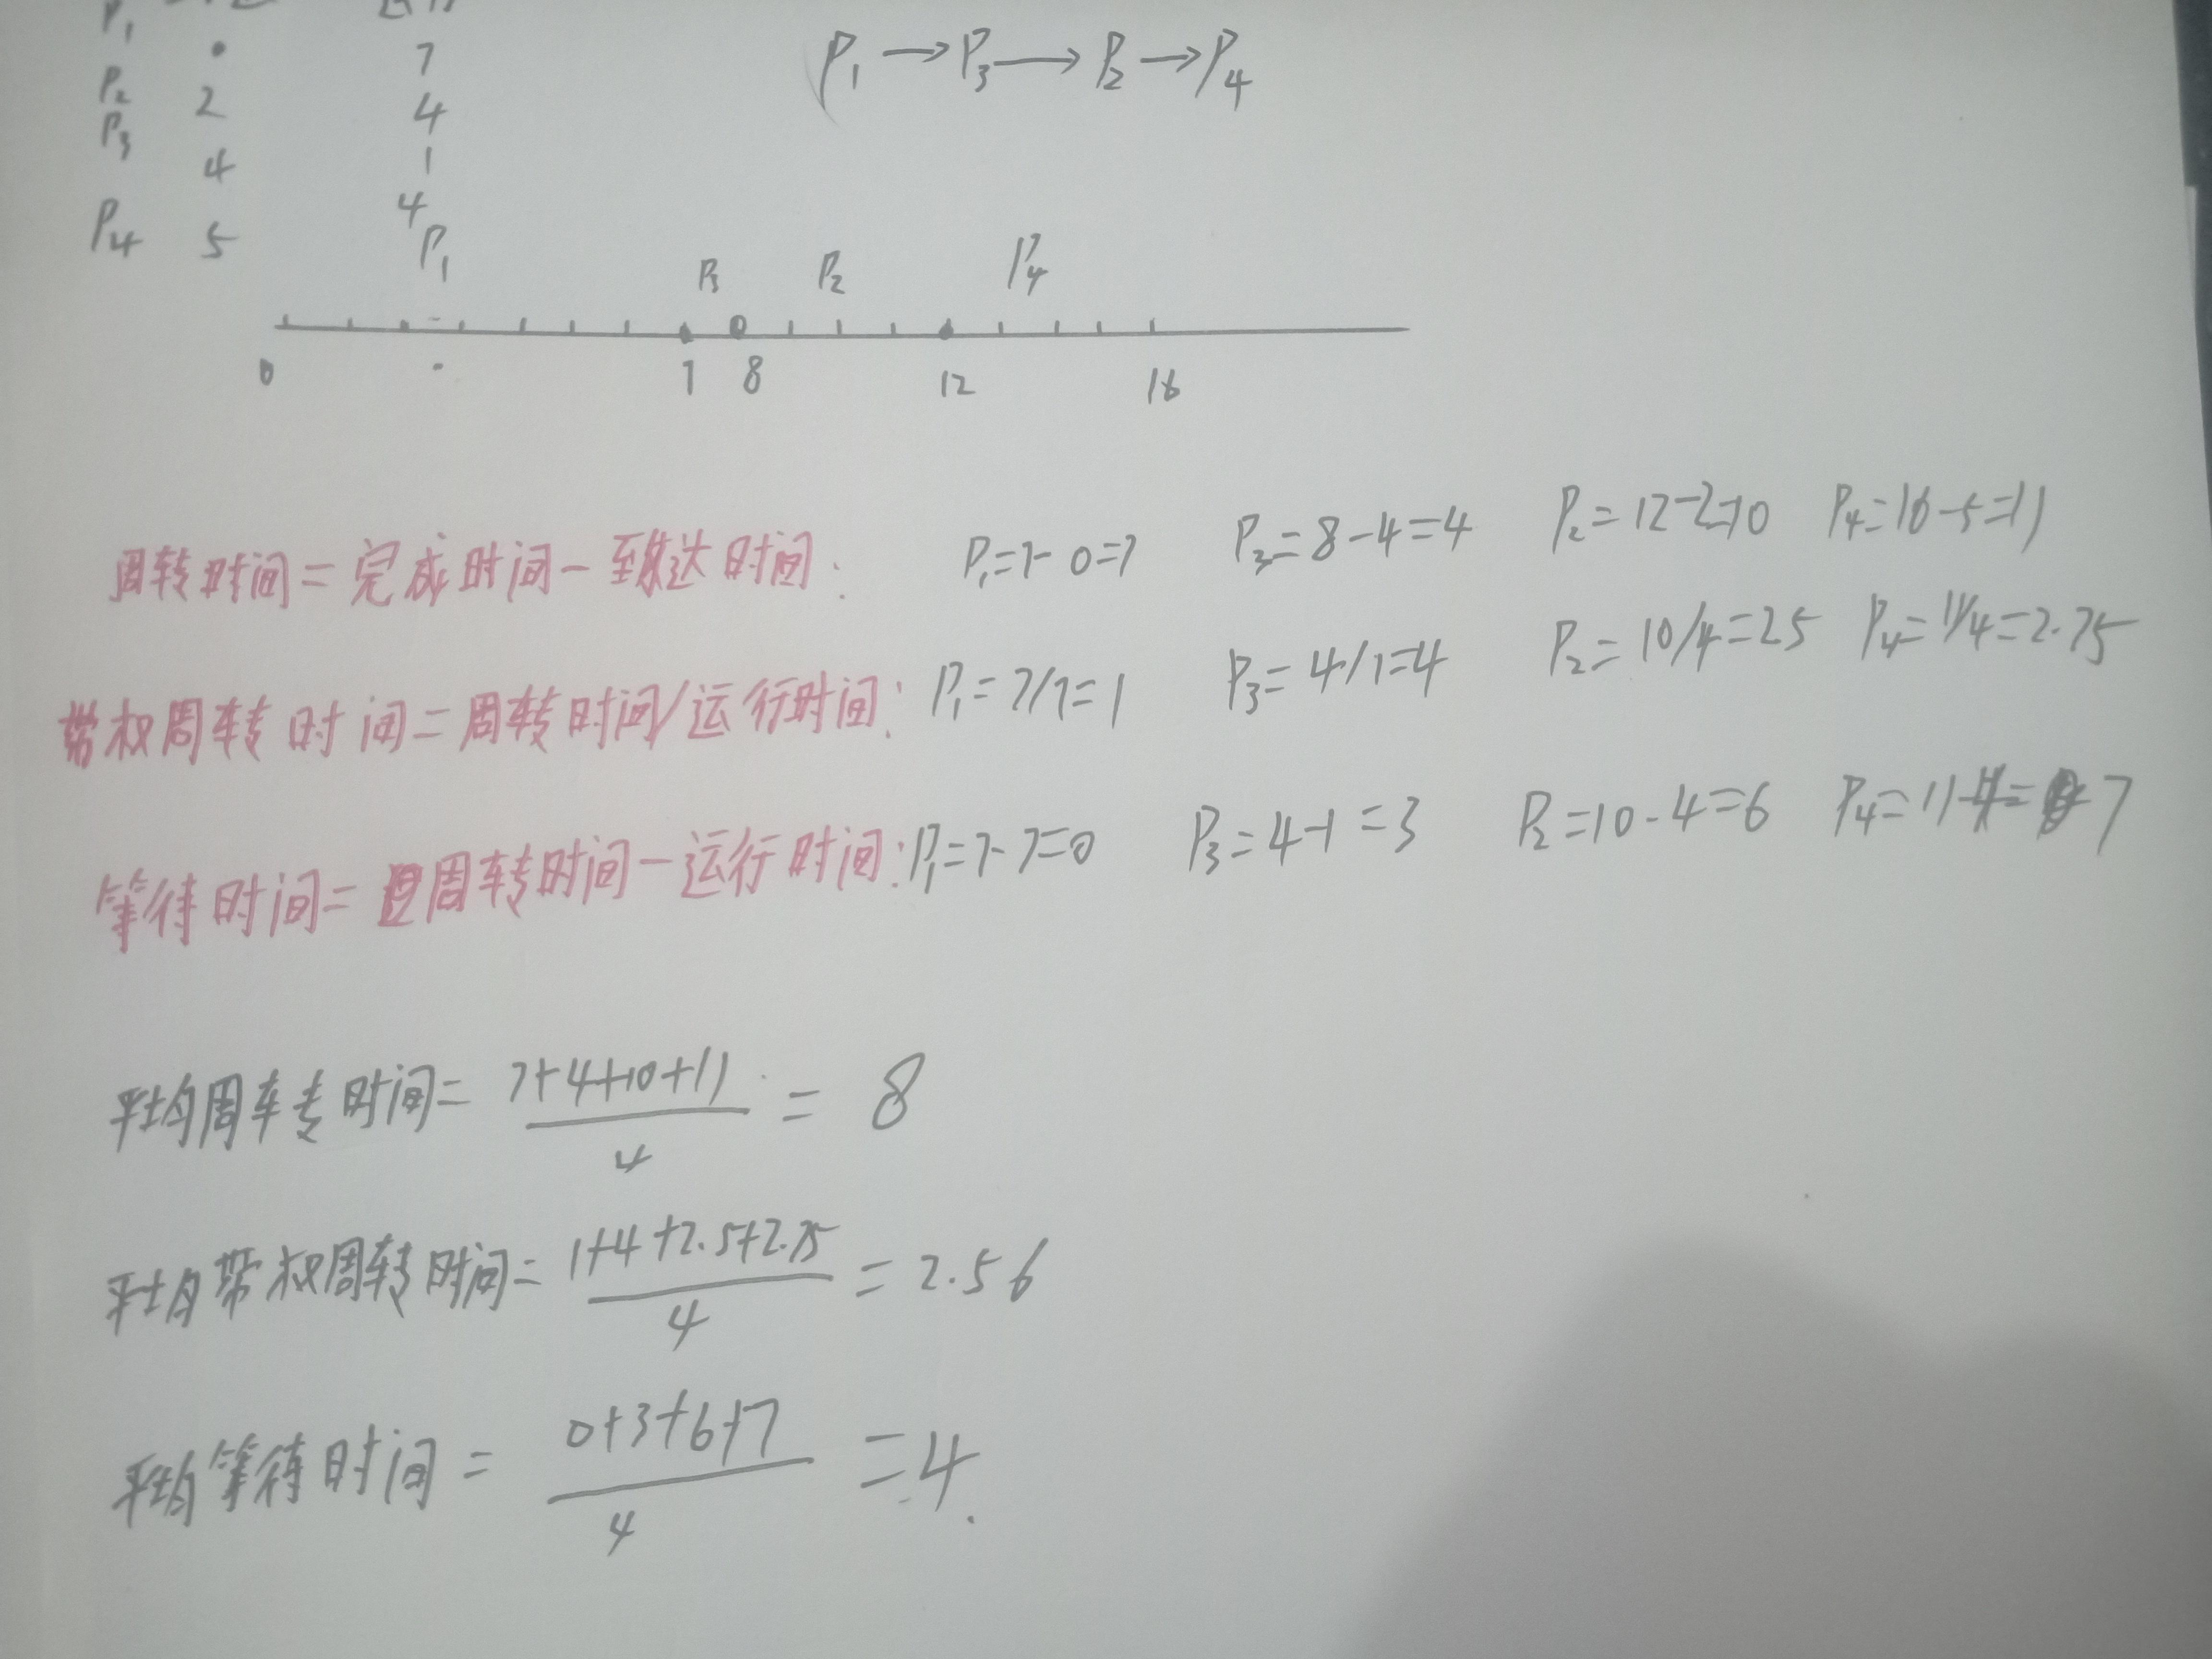 P1
0 7 P1→P3→P2→P4
P2 2 4
P3 4 1
P4 5 4
P1 P3 P2 P4
0 7 8 12 16
周转时间=完成时间-到达时间: P1=7-0=7 P3=8-4=4 P2=12-2=10 P4=16-5=11
带权周转时间=周转时间/运行时间: P1=7/7=1 P3=4/1=4 P2=10/4=2.5 P4=11/4=2.75
等待时间=周转时间-运行时间: P1=7-7=0 P3=4-1=3 P2=10-4=6 P4=11-4=7
平均周转时间= 7+4+10+11 / 4 = 8
平均带权周转时间= 1+4+2.5+2.75 / 4 = 2.56
平均等待时间= 0+3+6+7 / 4 =4.